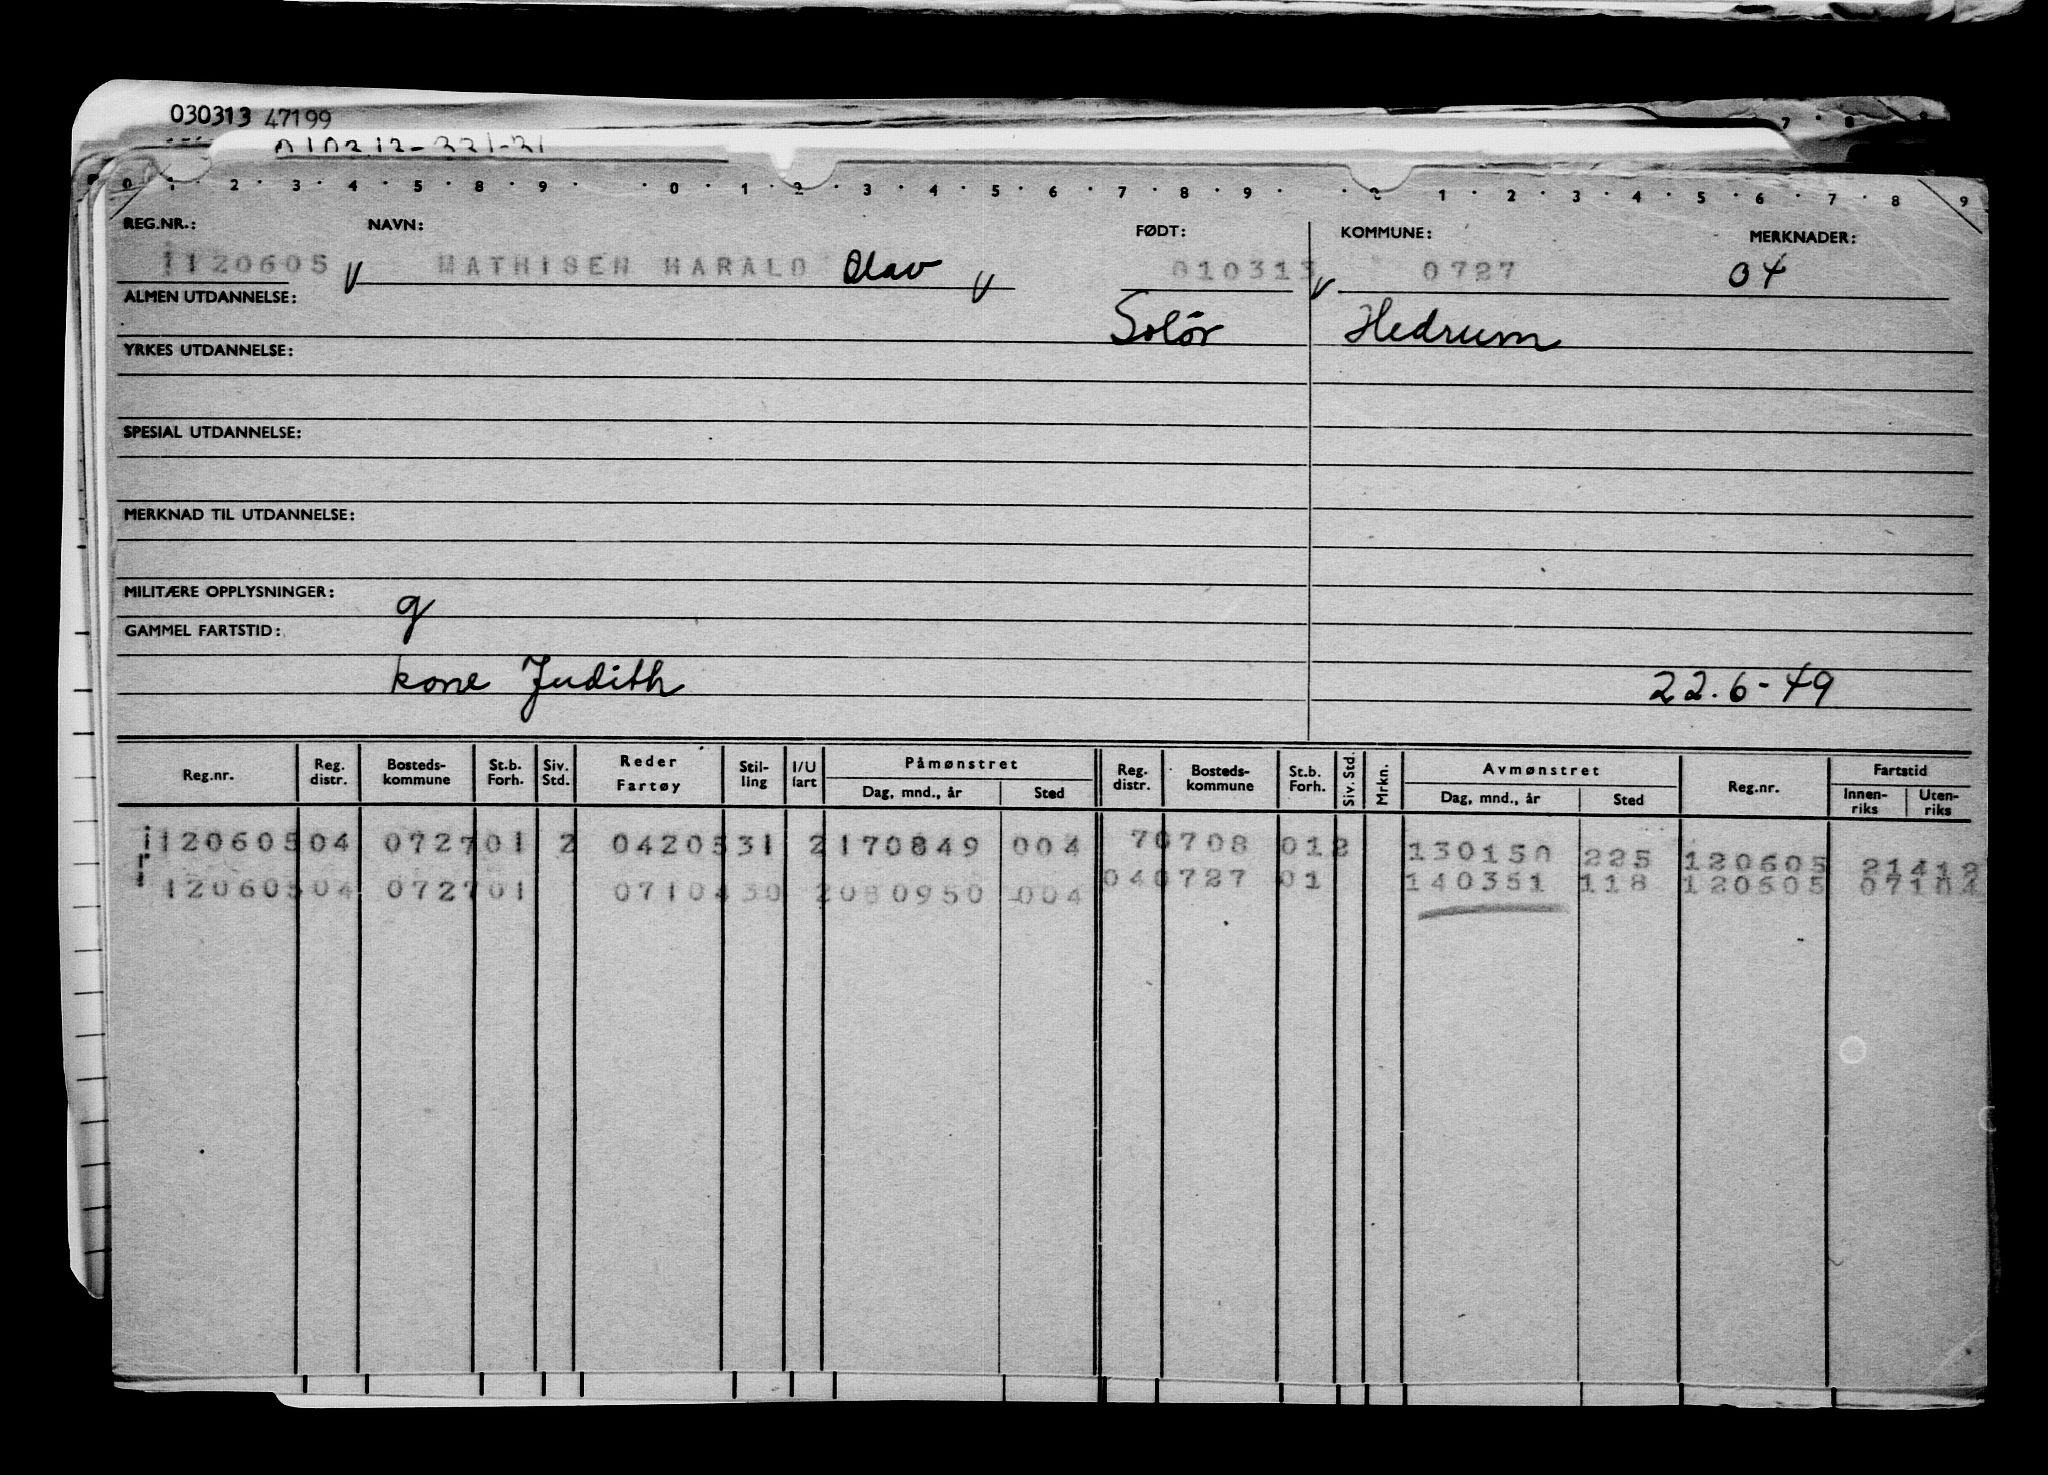 030313 47199
0 · 1 · 2 · 3 · 4 · 5 · 8 · 9 · · 0 · 1 · 2 · 3 · 4 · 5 · 6 · 7 · 8 · 9 · · 1 · 2 · 3 · 4 · 5 · 6 · 7 · 8 · 9
REG.NR.: NAVN: FØDT: KOMMUNE: MERKNADER:
120605 MATHISEN HARALD Olav 010313 0727 04
ALMEN UTDANNELSE: Solör Hedrum
YRKES UTDANNELSE:
SPESIAL UTDANNELSE:
MERKNAD TIL UTDANNELSE:
MILITÆRE OPPLYSNINGER: g
GAMMEL FARTSTID:
kone Judith 22.6-49
Reg.nr. Reg. distr. Bosteds- kommune St.b. Forh. Siv. Std. Reder Fartøy Stil- ling I/U fart Påmønstret Dag, mnd., år Sted Reg. distr. Bosteds- kommune St.b. Forh. Siv. Std. Mrkn. Avmønstret Dag, mnd., år Sted Reg.nr. Fartstid Innen- riks Uten- riks
120605 04 0727 01 2 04205 31 2 170849 004 70708 01 2 130150 225 120605 21412
120605 04 0727 01 0710 30 2 080950 004 040727 01 140351 118 120605 07104